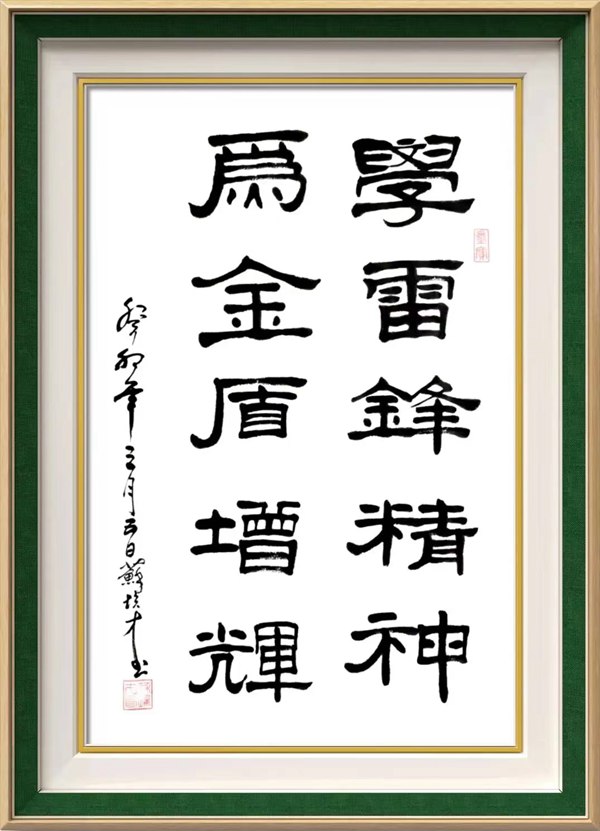 學雷鋒精神
爲金盾增輝
癸卯年三月五日蘇培才书